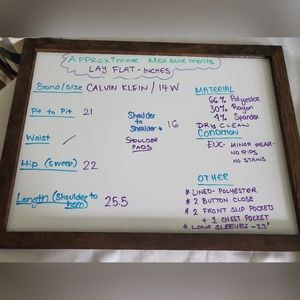 APPROXIMATE MEASUREMENTS
LAY FLAT-INCHES
Brand/Size CALVIN KLEIN / 14W
Pit to Pit 21
Shoulder to Shoulder 16
SHOULDER PADS
Waist /
Hip (Sweep) 22
Length (Shoulder to hem) 25.5
MATERIAL
66% Polyester
30% Rayon
4% Spandex
DRY CLEAN
CONDITION
EUC- MINOR WEAR-
NO RIPS
NO STAINS
OTHER
* LINED- POLYESTER
* 2 BUTTON CLOSE
* 2 FRONT SLIP POCKETS
+ 1 CHEST POCKET
* LONG SLEEVES -23"